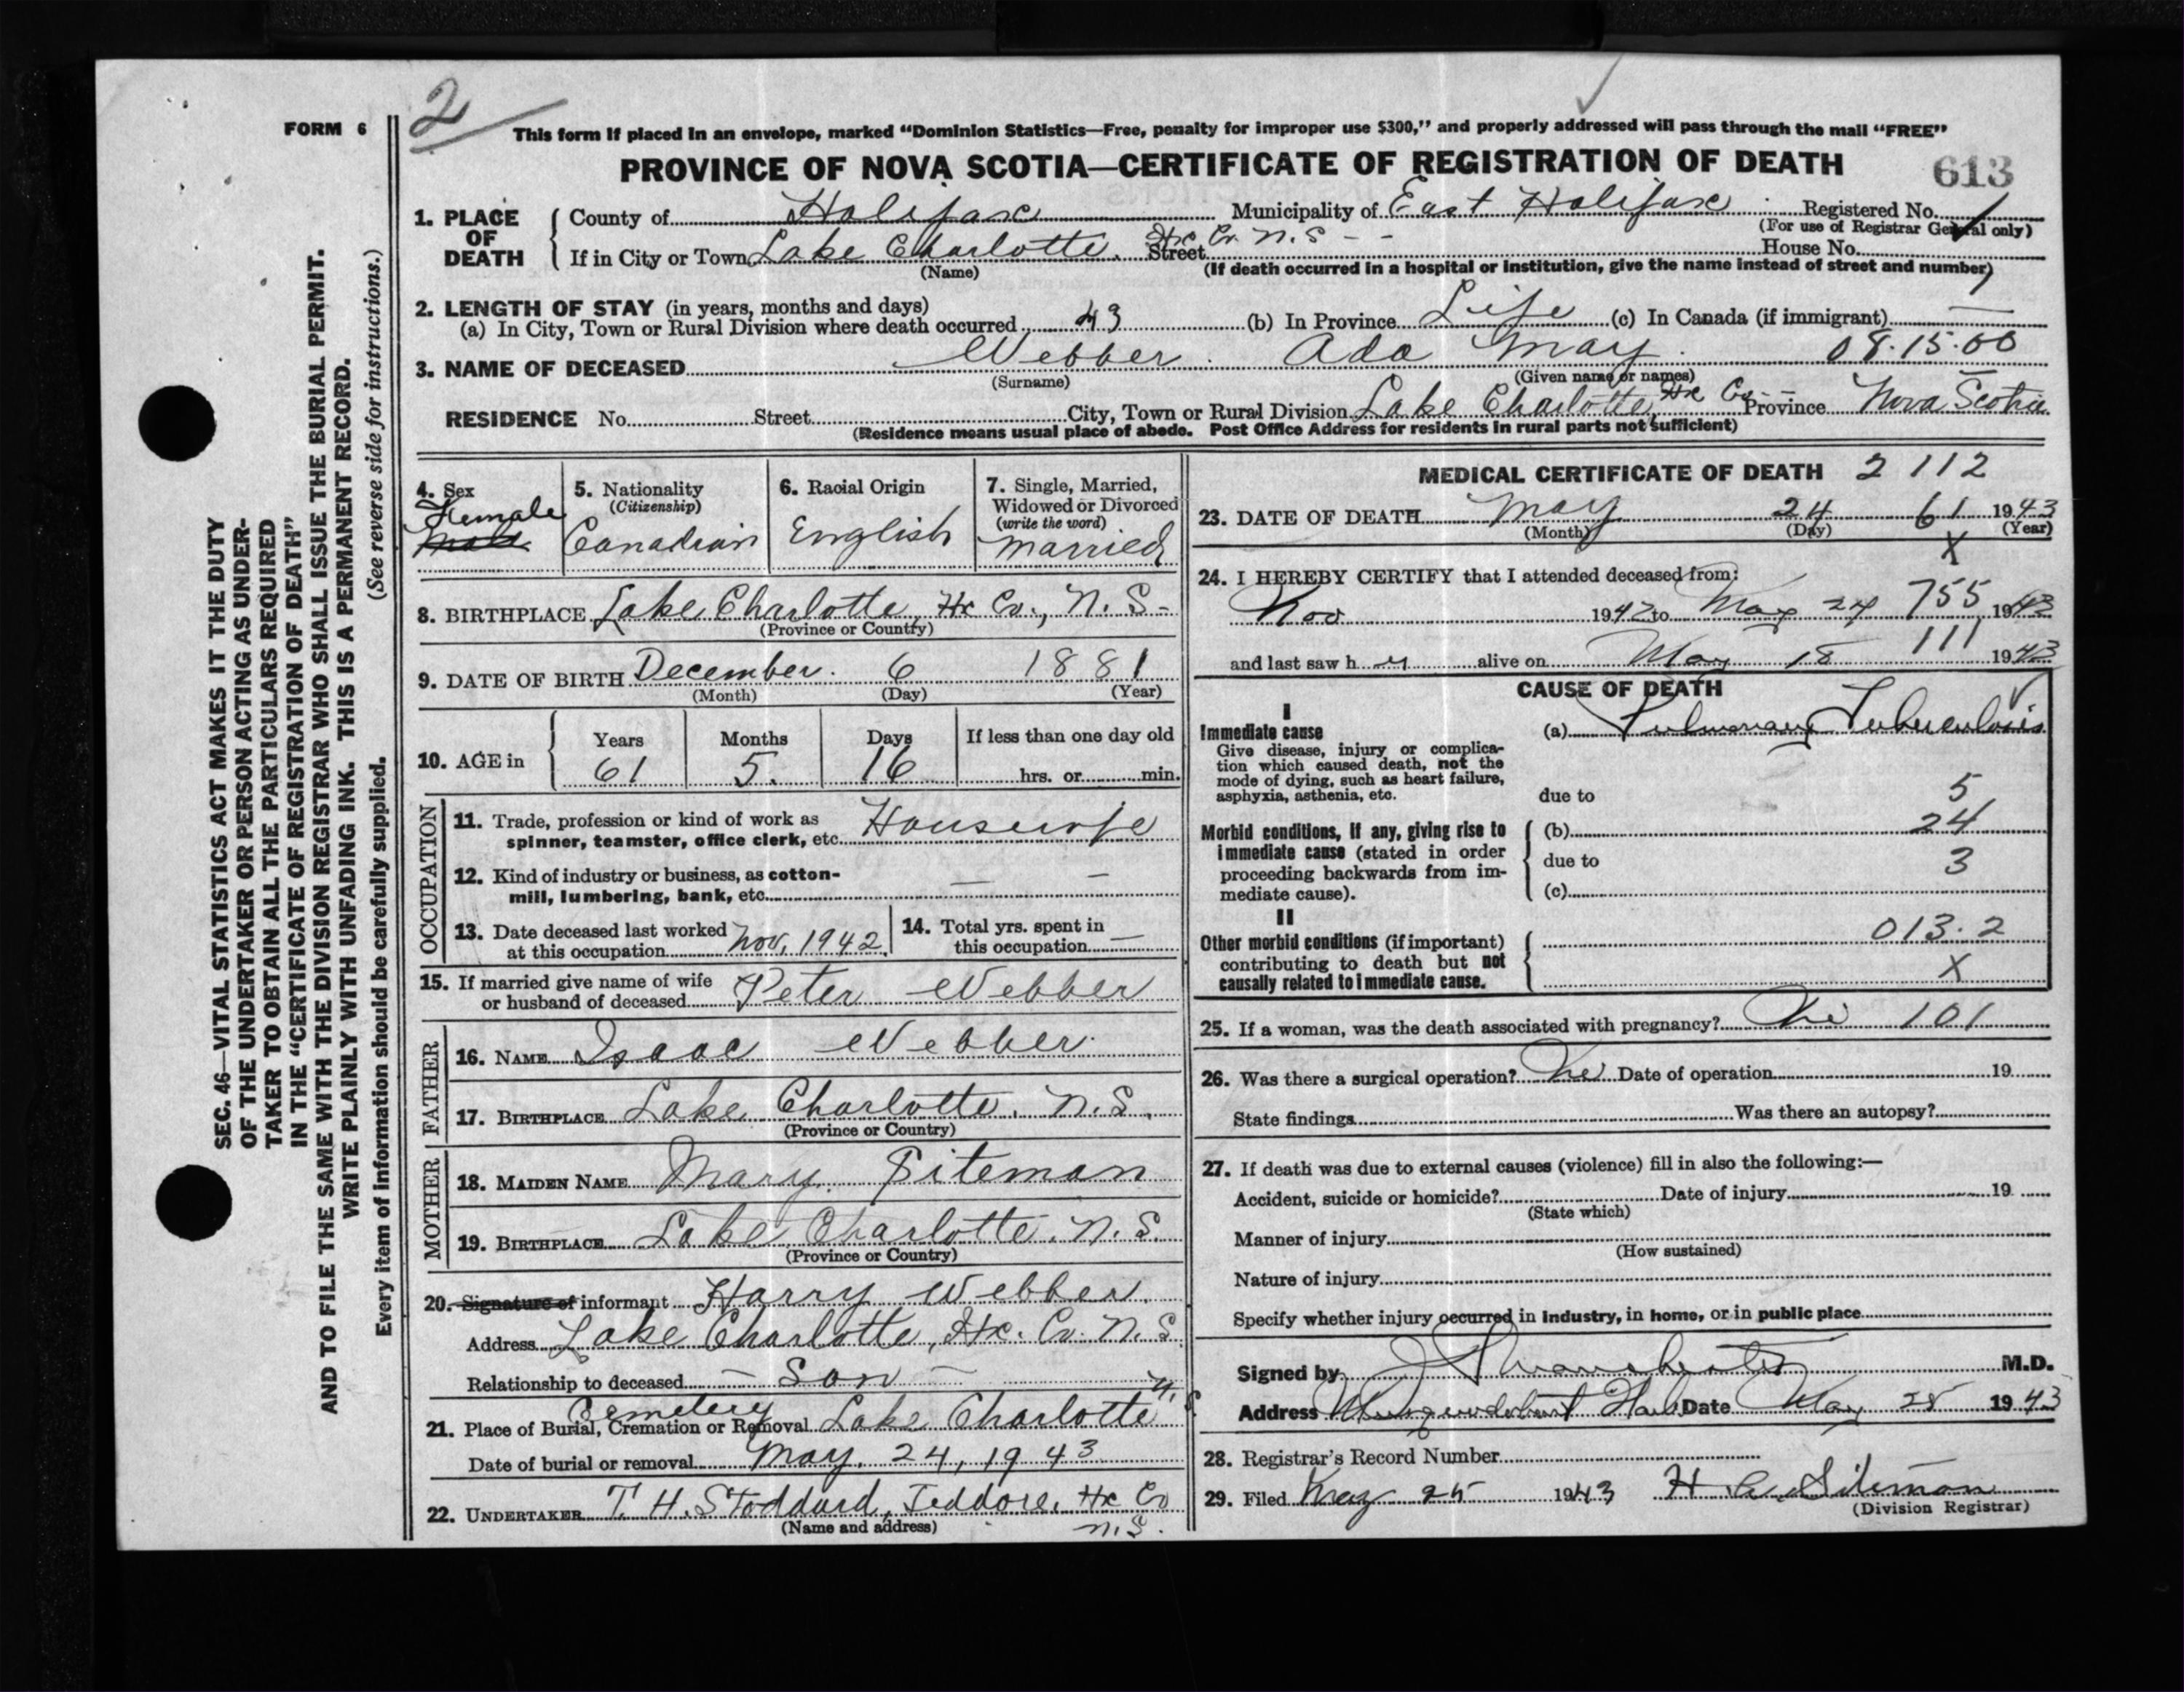 FORM 6
2
This form if placed in an envelope, marked “Dominion Statistics—Free, penalty for improper use $300,” and properly addressed will pass through the mail “FREE”
PROVINCE OF NOVA SCOTIA—CERTIFICATE OF REGISTRATION OF DEATH 613
1. PLACE OF DEATH County of Halifax Municipality of East Halifax Registered No.
(For use of Registrar General only)
If in City or Town Lake Charlotte, Hx Co. N.S - - Street House No.
(Name) (If death occurred in a hospital or institution, give the name instead of street and number)
2. LENGTH OF STAY (in years, months and days)
(a) In City, Town or Rural Division where death occurred 43 (b) In Province Life (c) In Canada (if immigrant) —
3. NAME OF DECEASED Webber Ada May 08.15.00
(Surname) (Given name or names)
RESIDENCE No. Street City, Town or Rural Division Lake Charlotte, Hx Co Province Nova Scotia
(Residence means usual place of abode. Post Office Address for residents in rural parts not sufficient)
4. Sex Female Male
5. Nationality (Citizenship) Canadian
6. Racial Origin English
7. Single, Married, Widowed or Divorced (write the word) Married
8. BIRTHPLACE Lake Charlotte, Hx Co., N. S-
(Province or Country)
9. DATE OF BIRTH December 6 1881
(Month) (Day) (Year)
10. AGE in Years Months Days If less than one day old
61 5. 16 hrs. or min.
OCCUPATION
11. Trade, profession or kind of work as
spinner, teamster, office clerk, etc. Housewife
12. Kind of industry or business, as cotton-
mill, lumbering, bank, etc. — —
13. Date deceased last worked
at this occupation Nov, 1942
14. Total yrs. spent in
this occupation —
15. If married give name of wife
or husband of deceased Peter Webber
FATHER
16. NAME Isaac Webber
17. BIRTHPLACE Lake Charlotte. N.S.
(Province or Country)
MOTHER
18. MAIDEN NAME Mary Siteman
19. BIRTHPLACE Lake Charlotte. N.S.
(Province or Country)
20. Signature of informant Harry Webber.
Address Lake Charlotte, Hx. Co. N.S
Relationship to deceased — Son —
21. Place of Burial, Cremation or Removal Cemetery Lake Charlotte N.S
Date of burial or removal May. 24, 1943
22. UNDERTAKER T. H. Stoddard, Jeddore, Hx Co N.S.
(Name and address)
MEDICAL CERTIFICATE OF DEATH 2 112
23. DATE OF DEATH May 24 61 1943
(Month) (Day) (Year)
X
24. I HEREBY CERTIFY that I attended deceased from:
Nov 1942 to May 24 755 1943
111
and last saw her alive on May 18 1943
CAUSE OF DEATH
I
Immediate cause (a) Pulmonary Tuberculosis
Give disease, injury or complica-
tion which caused death, not the
mode of dying, such as heart failure,
asphyxia, asthenia, etc. due to 5
Morbid conditions, if any, giving rise to (b) 24
immediate cause (stated in order due to 3
proceeding backwards from im-
mediate cause). (c)
II
Other morbid conditions (if important) 013.2
contributing to death but not X
causally related to immediate cause.
25. If a woman, was the death associated with pregnancy? No 101
26. Was there a surgical operation? No Date of operation 19
State findings Was there an autopsy?
27. If death was due to external causes (violence) fill in also the following:—
Accident, suicide or homicide? Date of injury 19
(State which)
Manner of injury
(How sustained)
Nature of injury
Specify whether injury occurred in industry, in home, or in public place
Signed by M.D.
Address Musquodoboit Harb Date May 28 1943
28. Registrar's Record Number
29. Filed May 25 1943 H Siteman
(Division Registrar)
SEC. 46—VITAL STATISTICS ACT MAKES IT THE DUTY
OF THE UNDERTAKER OR PERSON ACTING AS UNDER-
TAKER TO OBTAIN ALL THE PARTICULARS REQUIRED
IN THE “CERTIFICATE OF REGISTRATION OF DEATH”
AND TO FILE THE SAME WITH THE DIVISION REGISTRAR WHO SHALL ISSUE THE BURIAL PERMIT.
WRITE PLAINLY WITH UNFADING INK. THIS IS A PERMANENT RECORD.
Every item of information should be carefully supplied. (See reverse side for instructions.)